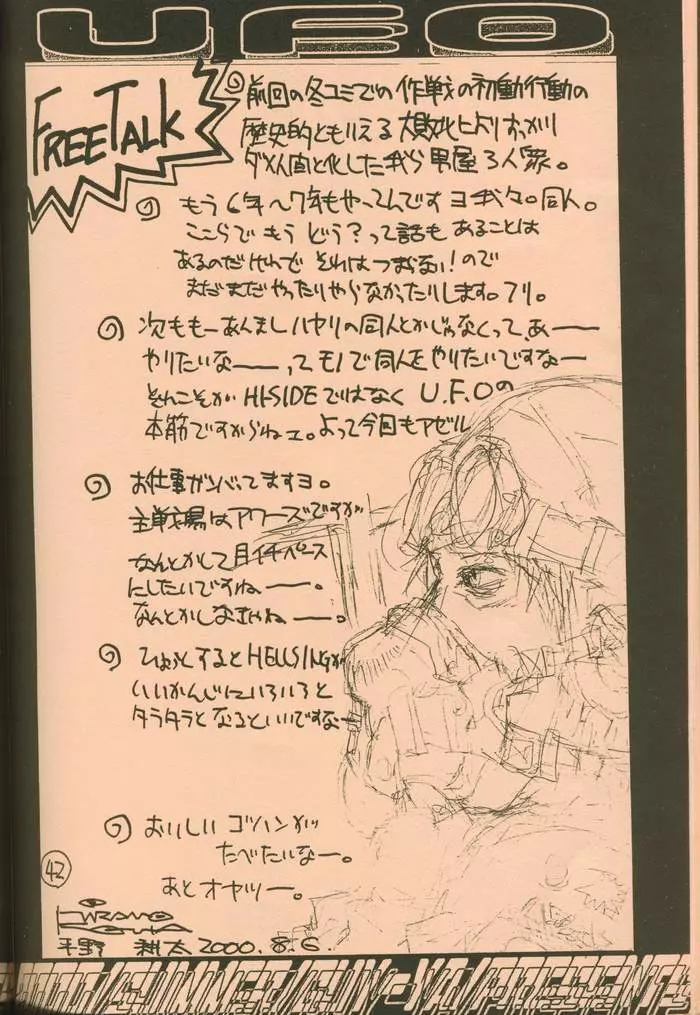 UFO
FREE TALK
前回の冬コミでの作戦の初動行動の
歴史的ともいえる大敗北によりすっかり
ダメ人間と化した我ら男屋3人衆。
もう6年〜7年もやってんですヨ我々。同人。
ここらでもうどう?って話もあることは
あるのだけれで それはつまらない!ので
まだまだやったりやらなかったりします。フリ。
次ももーあんましハヤリの同人とかじゃなくって、あー
やりたいなーってモノで同人をやりたいですなー
それこそがHI-SIDEではなく U.F.Oの
本筋ですからねェ。よって今回もアゼル
お仕事ガンバってますヨ。
主戦場はアワーズですが
なんとかして月イチペース
にしたいですねー。
なんとかしなきゃねー。
ひょっとするとHELLSINGが
いいかんじにいろいろと
タラタラとなるといいですなー
おいしいゴハンが
たべたいなー。
あとオヤツー。
42
HIRANO KOUTA
平野 耕太 2000.8.6.